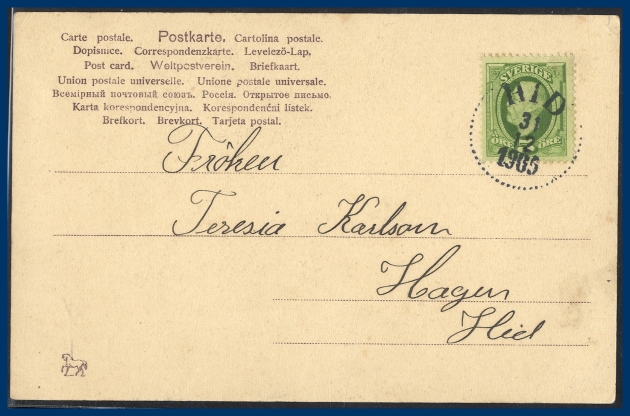 Carte postale. Postkarte. Cartolina postale.
Dopisnice. Correspondenzkarte. Levelező-Lap.
Post card. Weltpostverein. Briefkaart.
Union postale universelle. Unione postale universale.
Всемірный почтовый союзъ. Россія. Открытое письмо.
Karta korespondencyjna. Korespondenční lístek.
Brefkort. Brevkort. Tarjeta postal.
SVERIGE
HID
31
12
1905
ÖRE ÖRE
Fröken
Teresia Karlson
Hagen
Hid